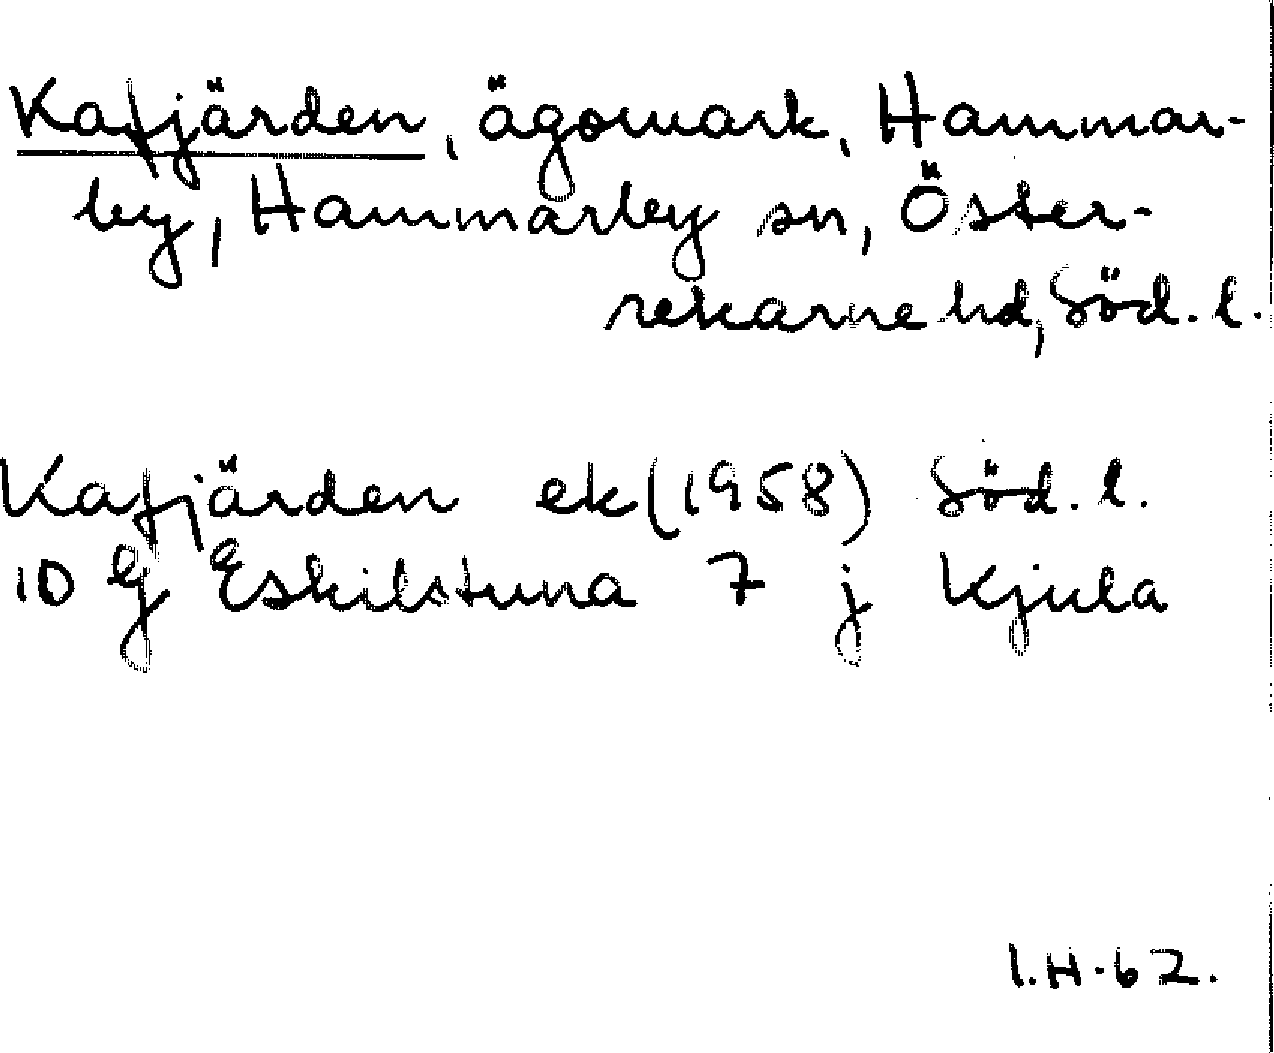 Kafjärden, ägomark, Hammar-
by, Hammarby sn, Öster-
rekarne hd, Söd. l.
Kafjärden ek (1958) Söd. l.
10 G Eskilstuna 7 j Kjula
I.H.62.